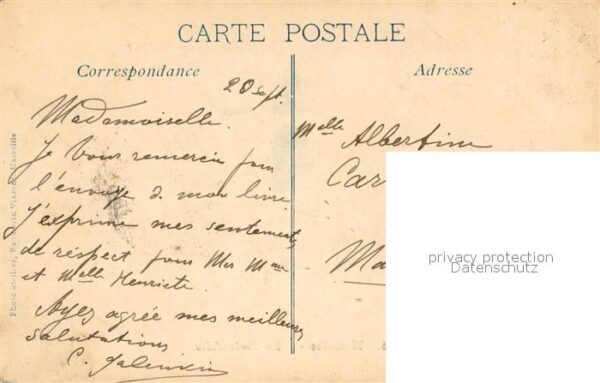 CARTE POSTALE
Correspondance
Adresse
20 Sept.
Mademoiselle.
Je Vous remercie pour
l'envoye d mon livre
J'exprime mes sentements
de réspect pour Mer Mme
et Melle Henriete.
Ayez agrée mes meilleurs
salutations
C.
Melle Albertine
Car
Ma
privacy protection
Datenschutz